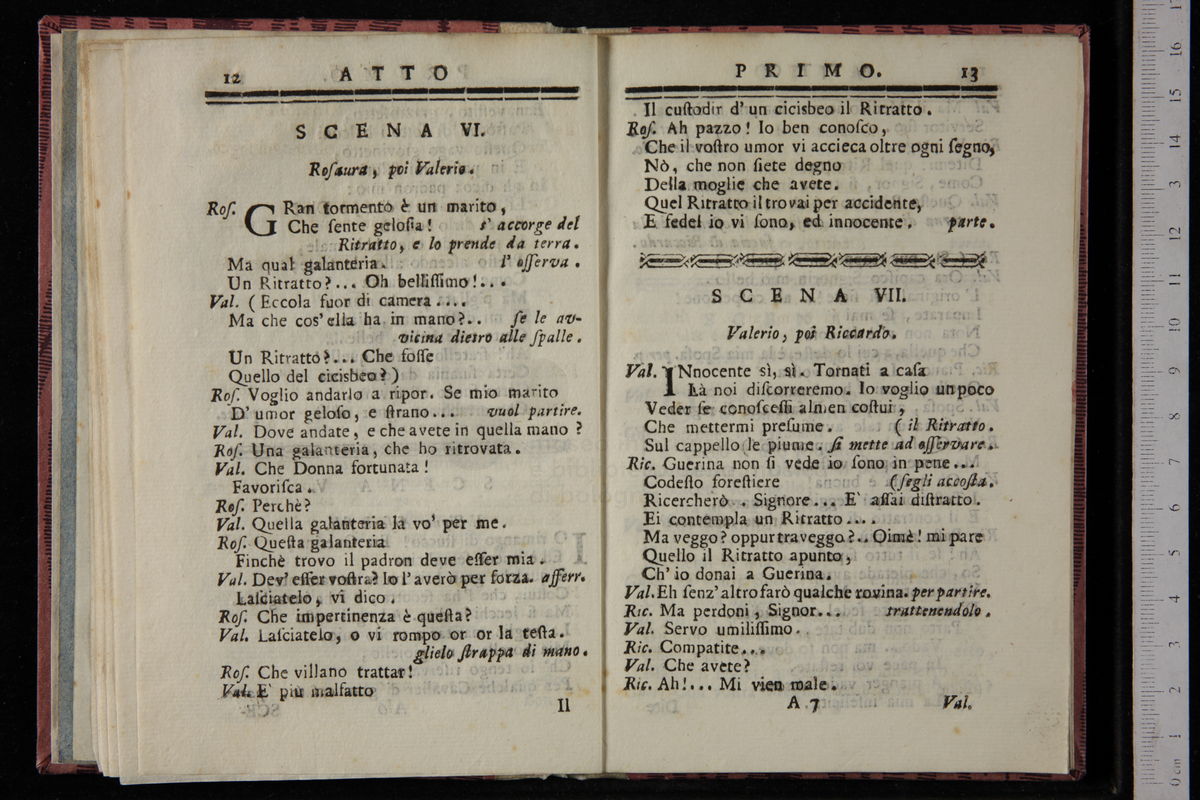 12 ATTO
SCENA VI.
Roſaura, poi Valerio.
Roſ. GRan tormento è un marito,
Che ſente geloſia! s' accorge del
Ritratto, e lo prende da terra.
Ma qual galanteria. l' oſſerva.
Un Ritratto?... Oh belliſſimo!...
Val. (Eccola fuor di camera....
Ma che cos' ella ha in mano?.. ſe le av-
vicina dietro alle ſpalle.
Un Ritratto?... Che foſſe
Quello del cicisbeo?)
Roſ. Voglio andarlo a ripor. Se mio marito
D' umor geloſo, e ſtrano... vuol partire.
Val. Dove andate, e che avete in quella mano?
Roſ. Una galanteria, che ho ritrovata.
Val. Che Donna fortunata!
Favoriſca.
Roſ. Perchè?
Val. Quella galanteria la vo' per me.
Roſ. Queſta galanteria
Finchè trovo il padron deve eſſer mia.
Val. Dev' eſſer voſtra? Io l' averò per forza. afferr.
Laſciatelo, vi dico.
Roſ. Che impertinenza è queſta?
Val. Laſciatelo, o vi rompo or or la teſta.
glielo ſtrappa di mano.
Roſ. Che villano trattar!
Val. E' più malfatto
Il
PRIMO. 13
Il cuſtodir d' un cicisbeo il Ritratto.
Roſ. Ah pazzo! Io ben conoſco,
Che il voſtro umor vi accieca oltre ogni ſegno,
Nò, che non ſiete degno
Della moglie che avete.
Quel Ritratto il trovai per accidente,
E fedel io vi ſono, ed innocente. parte.
SCENA VII.
Valerio, poi Riccardo.
Val. INnocente sì, sì. Tornati a caſa
Là noi diſcorreremo. Io voglio un poco
Veder ſe conoſceſſi almen coſtui,
Che mettermi preſume. ( il Ritratto.
Sul cappello le piume. ſi mette ad oſſervare.
Ric. Guerina non ſi vede io ſono in pene...
Codeſto foreſtiere (ſegli accoſta.
Ricercherò.. Signore... E' aſſai diſtratto.
Ei contempla un Ritratto....
Ma veggo? oppur traveggo?.. Oimè! mi pare
Quello il Ritratto apunto,
Ch' io donai a Guerina.
Val. Eh ſenz' altro farò qualche rovina. per partire.
Ric. Ma perdoni, Signor... trattenendolo.
Val. Servo umiliſſimo.
Ric. Compatite...
Val. Che avete?
Ric. Ah!... Mi vien male.
A 7 Val.